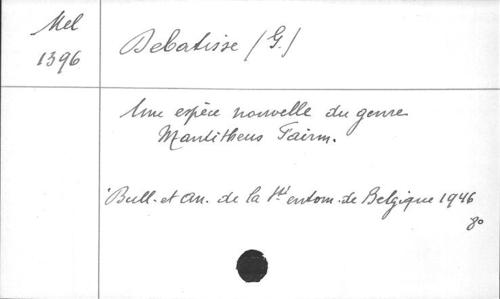 Mel
1396
Debatisse (G.)
Une espèce nouvelle du genre
Mantitheus Fairm.
Bull. et An. de la Sté entom. de Belgique 1946
8o